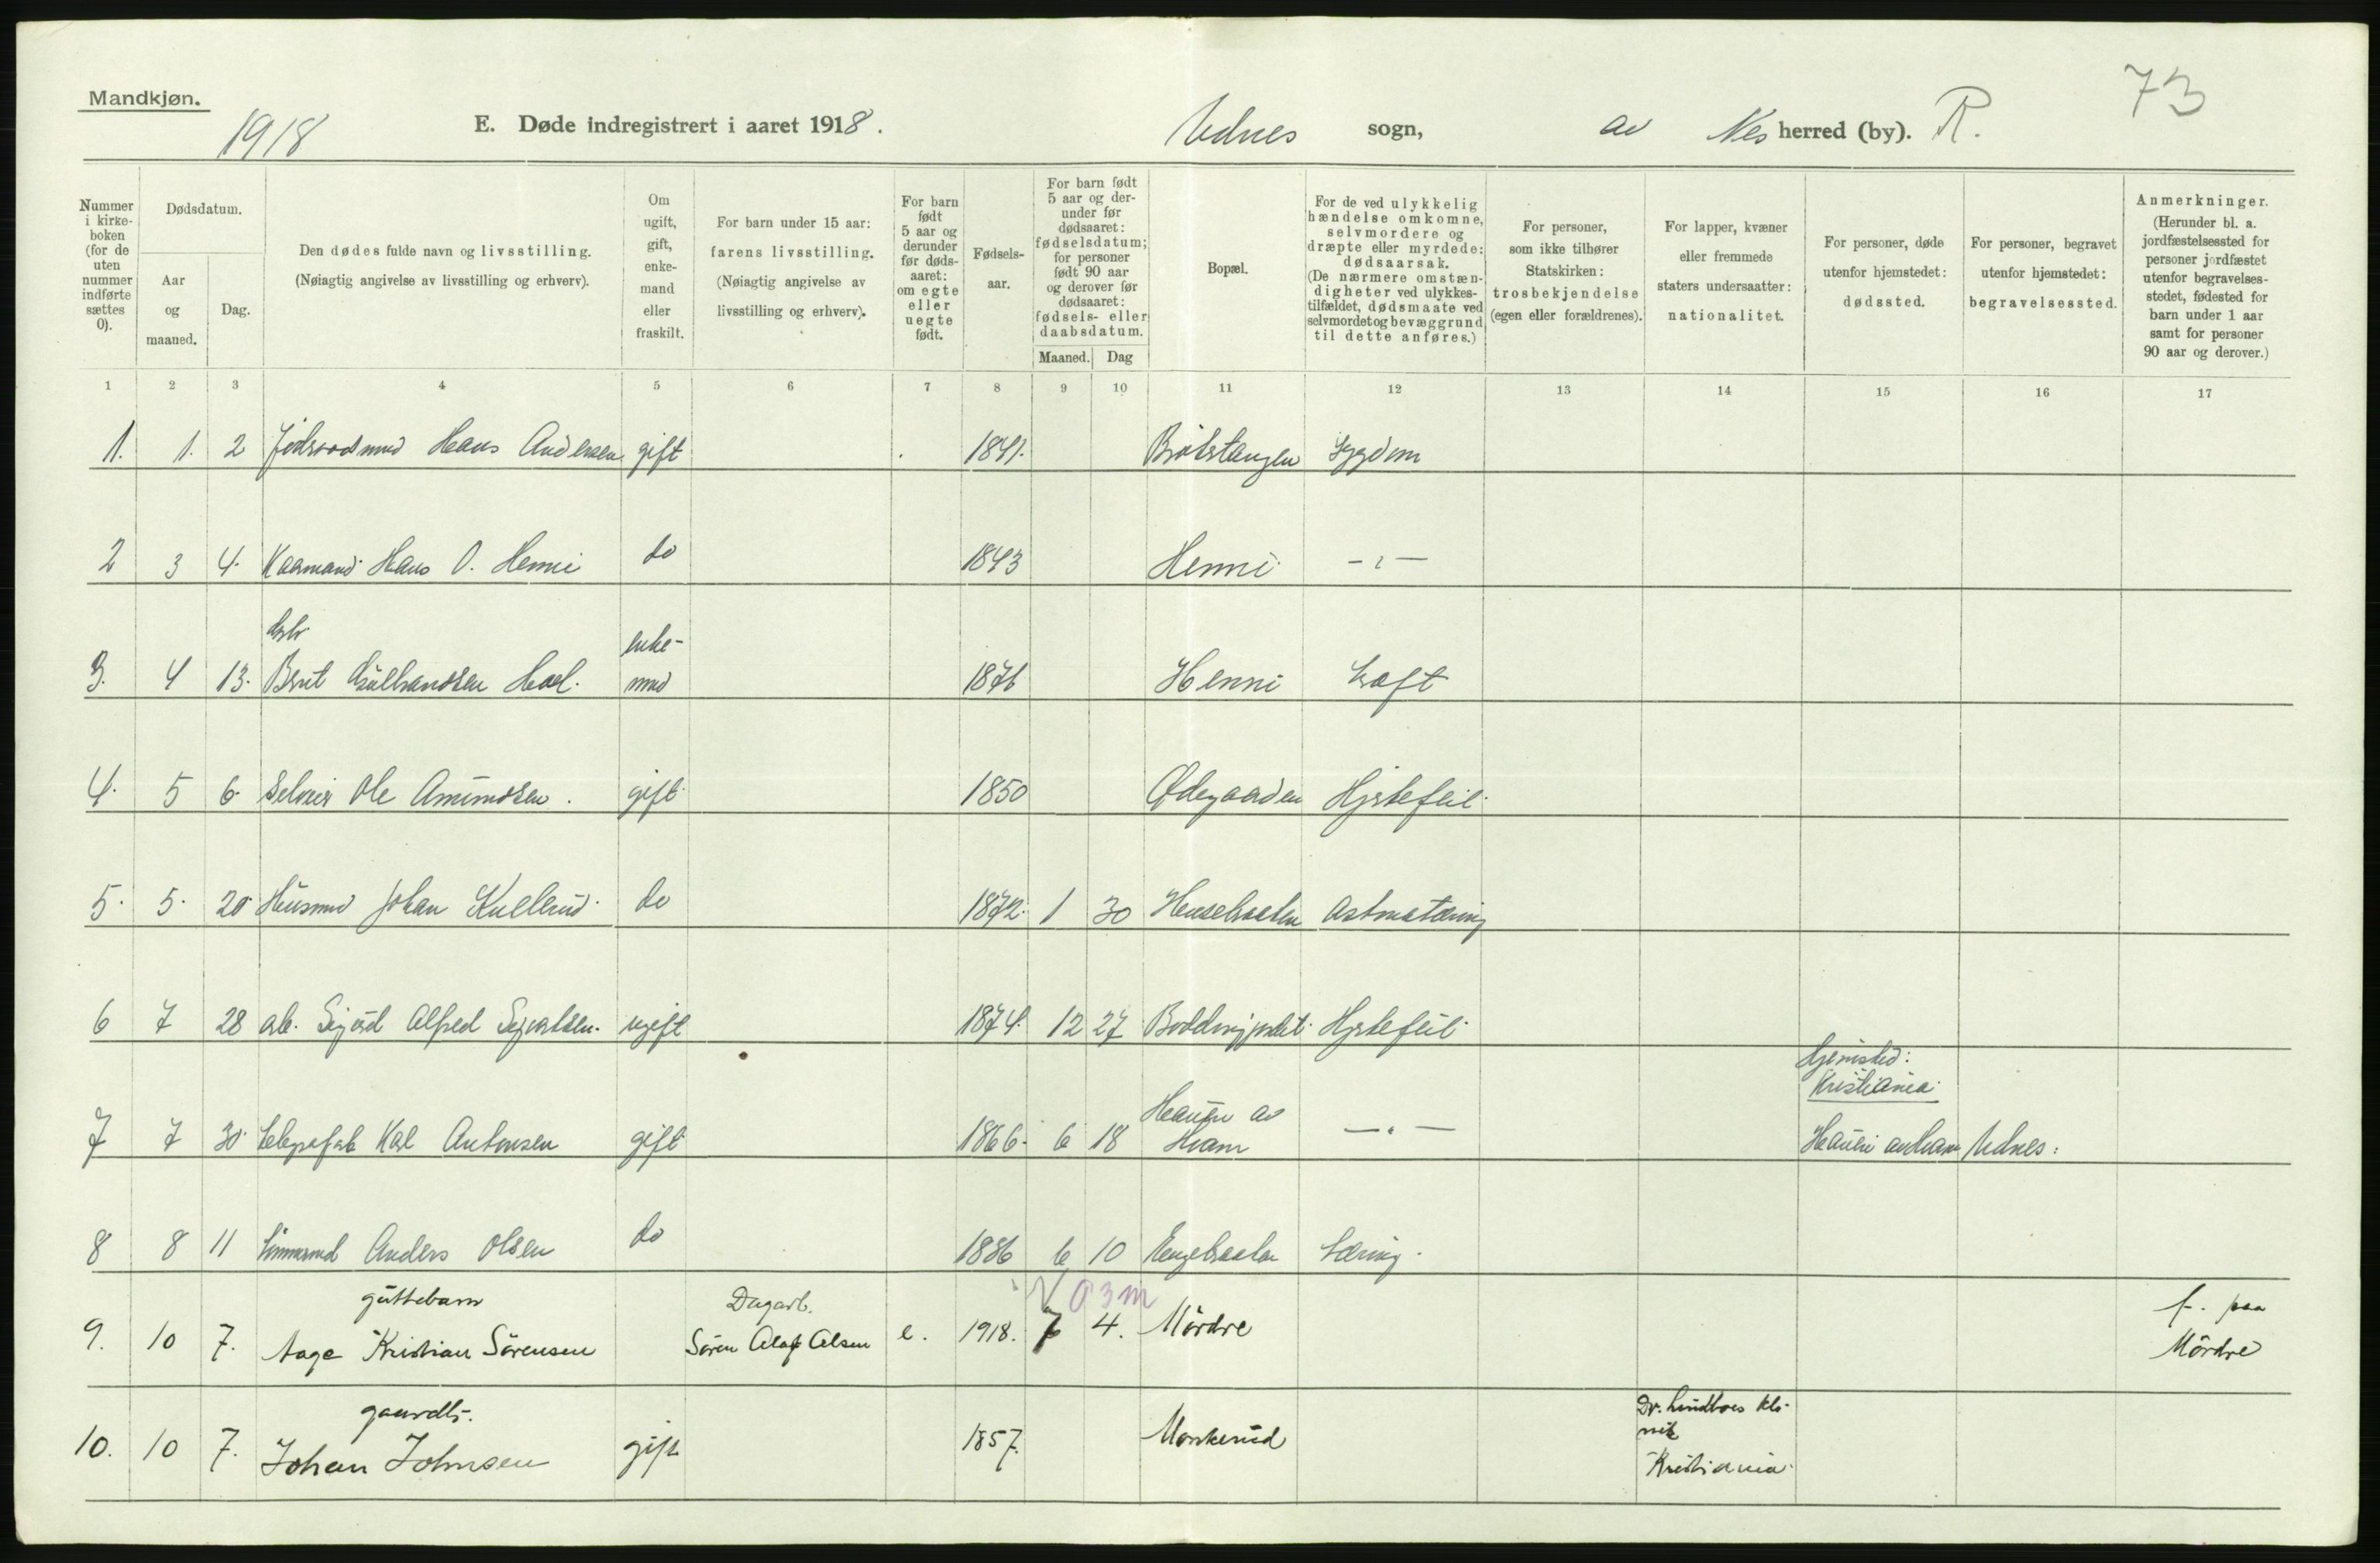 Mandkjøn.
73
1918
E. Døde indregistrert i aaret 1918.
Udnes sogn, av Nes herred (by). R.
Nummer i kirke-boken (for de uten nummer indførte sættes 0).
Dødsdatum.
Aar og maaned.
Dag.
Den dødes fulde navn og livsstilling. (Nøiagtig angivelse av livsstilling og erhverv).
Om ugift, gift, enke-mand eller fraskilt.
For barn under 15 aar: farens livsstilling. (Nøiagtig angivelse av livsstilling og erhverv).
For barn født 5 aar og derunder før døds-aaret: om egte eller uegte født.
Fødsels-aar.
For barn født 5 aar og der-under før dødsaaret: fødselsdatum; for personer født 90 aar og derover før dødsaaret: fødsels- eller daabsdatum.
Maaned. Dag
Bopæl.
For de ved ulykkelig hændelse omkomne, selvmordere og dræpte eller myrdede: dødsaarsak. (De nærmere omstæn-digheter ved ulykkes-tilfældet, dødsmaate ved selvmordet og bevæggrund til dette anføres.)
For personer, som ikke tilhører Statskirken: trosbekjendelse (egen eller forældrenes).
For lapper, kvæner eller fremmede staters undersaatter: nationalitet.
For personer, døde utenfor hjemstedet: dødssted.
For personer, begravet utenfor hjemstedet: begravelsessted.
Anmerkninger. (Herunder bl. a. jordfæstelsessted for personer jordfæstet utenfor begravelses-stedet, fødested for barn under 1 aar samt for personer 90 aar og derover.)
1 2 3 4 5 6 7 8 9 10 11 12 13 14 15 16 17
1. 1. 2 Hans Andersen gift 1841. Sygdom
2 3 4. Kaarmand Hans O. Henni do 1843 Henni
enke-
3. 4 13. Bernt Gulbrandsen Hoel. mnd 1876 Henni
4. 5 6. Selveier Ole Amundsen. gift 1850 Ødegaarden Hjertefeil.
5. 5. 20 Husmnd Johan Kullerud. do 1872. 1 30
6 7 28 arb. Sigurd Alfred ugift 1874. 12 27 Hjertefeil.
Hjemsted:
Kristiania.
Hauen av
7 7 30. Karl Antonsen gift 1866. 6 18 Hvam Hauen av Hvam Udnes.
8 8 11 Anders Olsen do 1886 6 10 Tæring.
guttebarn Dagarb. V 0 3 m f. paa
9. 10 7. Aage Kristian Sörensen Sören Olaf Olsen e. 1918. 7 4. Mördre Mördre
Dr. Lindboes kli-
nik
10. 10 7. Johan Johnsen gift 1857. Kristiania.